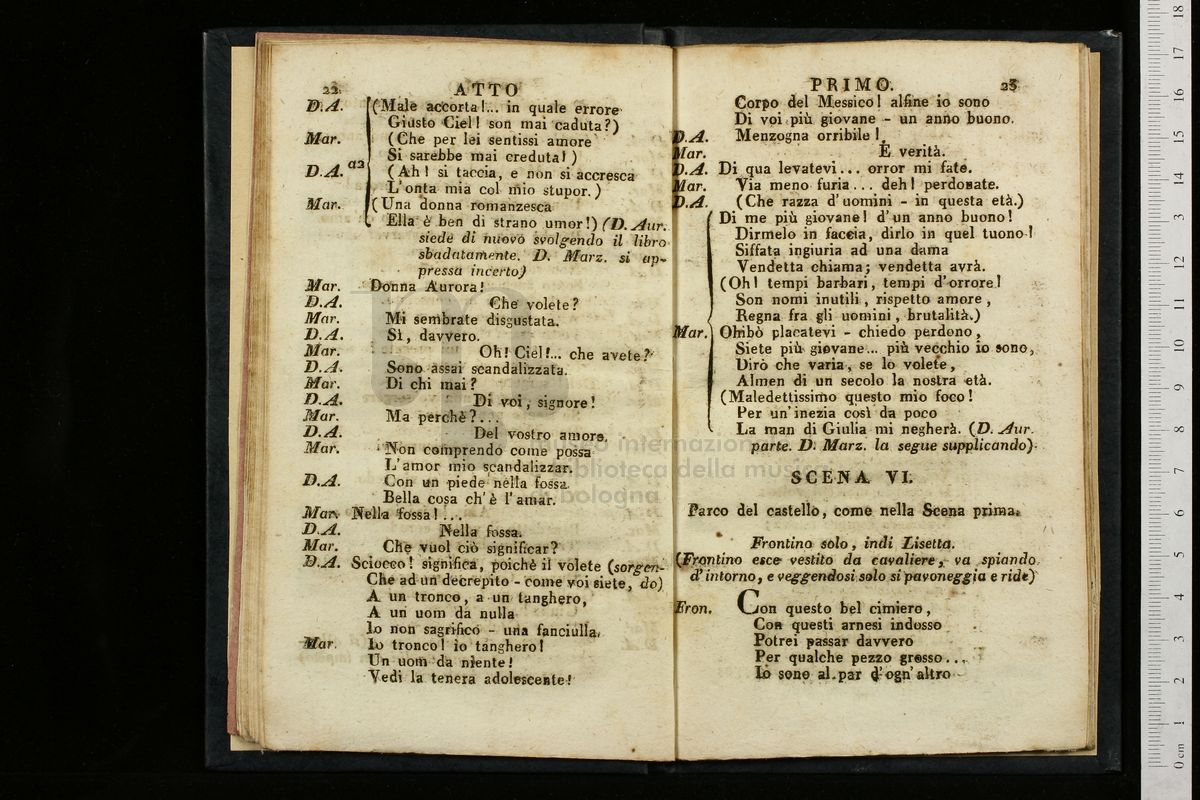 22 ATTO
D.A. (Male accorta!... in quale errore
Giusto Ciel! son mai caduta?)
Mar. (Che per lei sentissi amore
Si sarebbe mai creduta!)
a2
D.A. (Ah! si taccia, e non si accresca
L'onta mia col mio stupor.)
Mar. (Una donna romanzesca
Ella è ben di strano umor!) (D. Aur.
siede di nuovo svolgendo il libro
sbadatamente. D. Marz. si ap-
pressa incerto)
Mar. Donna Aurora!
D.A. Che volete?
Mar. Mi sembrate disgustata.
D.A. Sì, davvero.
Mar. Oh! Ciel!... che avete?
D.A. Sono assai scandalizzata.
Mar. Di chi mai?
D.A. Di voi, signore!
Mar. Ma perchè?...
D.A. Del vostro amore.
Mar. Non comprendo come possa
L'amor mio scandalizzar.
D.A. Con un piede nella fossa
Bella cosa ch'è l'amar.
Mar. Nella fossa!...
D.A. Nella fossa.
Mar. Che vuol ciò significar?
D.A. Sciocco! significa, poichè il volete (sorgen-
Che ad un decrepito - come voi siete, do)
A un tronco, a un tanghero,
A un uom da nulla
Io non sagrifico - una fanciulla.
Mar. Io tronco! io tanghero!
Un uom da niente!
Vedi la tenera adolescente!
PRIMO. 23
Corpo del Messico! alfine io sono
Di voi più giovane - un anno buono.
D.A. Menzogna orribile!
Mar. È verità.
D.A. Di qua levatevi... orror mi fate.
Mar. Via meno furia... deh! perdonate.
D.A. (Che razza d'uomini - in questa età.)
Di me più giovane! d'un anno buono!
Dirmelo in faccia, dirlo in quel tuono!
Siffata ingiuria ad una dama
Vendetta chiama; vendetta avrà.
(Oh! tempi barbari, tempi d'orrore!
Son nomi inutili, rispetto amore,
Regna fra gli uomini, brutalità.)
Mar. Ohibò placatevi - chiedo perdono,
Siete più giovane... più vecchio io sono,
Dirò che varia, se lo volete,
Almen di un secolo la nostra età.
(Maledettissimo questo mio foco!
Per un'inezia così da poco
La man di Giulia mi negherà. (D. Aur.
parte. D. Marz. la segue supplicando)
SCENA VI.
Parco del castello, come nella Scena prima.
Frontino solo, indi Lisetta.
(Frontino esce vestito da cavaliere, va spiando
d'intorno, e veggendosi solo si pavoneggia e ride)
Fron. Con questo bel cimiero,
Con questi arnesi indosso
Potrei passar davvero
Per qualche pezzo grosso...
Io sono al par d'ogn'altro
museo internazionale
biblioteca della musica
bologna
0 cm 1 2 3 4 5 6 7 8 9 10 11 12 13 14 15 16 17 18